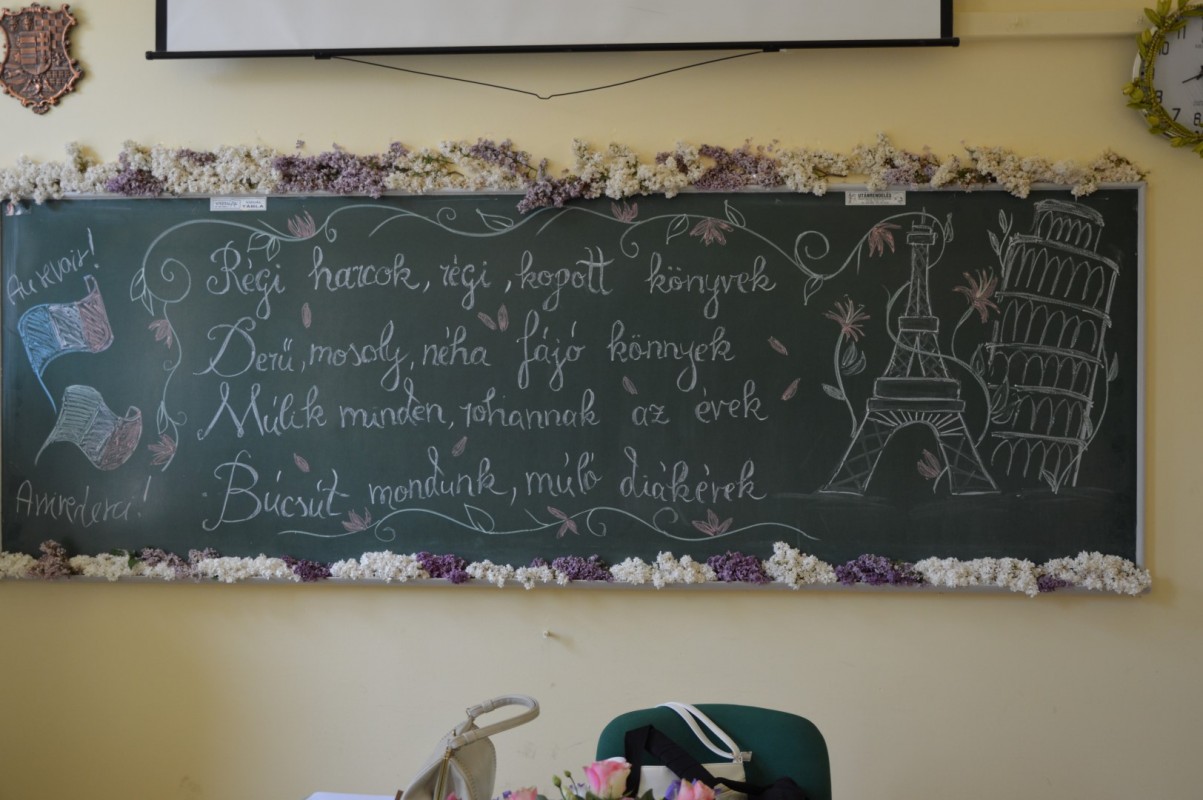 Au revoir!
Régi harcok, régi, kopott könyvek
Derű, mosoly, néha fájó könnyek
Múlik minden, rohannak az évek
Búcsút mondunk, múló diákévek
Arrivederci!
TÁBLA
UTÁNRENDELÉS
10 11
8 7 6